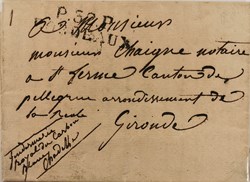 P.52.P.
BORDEAUX
A Monsieur
monsieur chaigne notaire
a st ferme Canton de
pellegrue arrondissement de
la Reole
Gironde